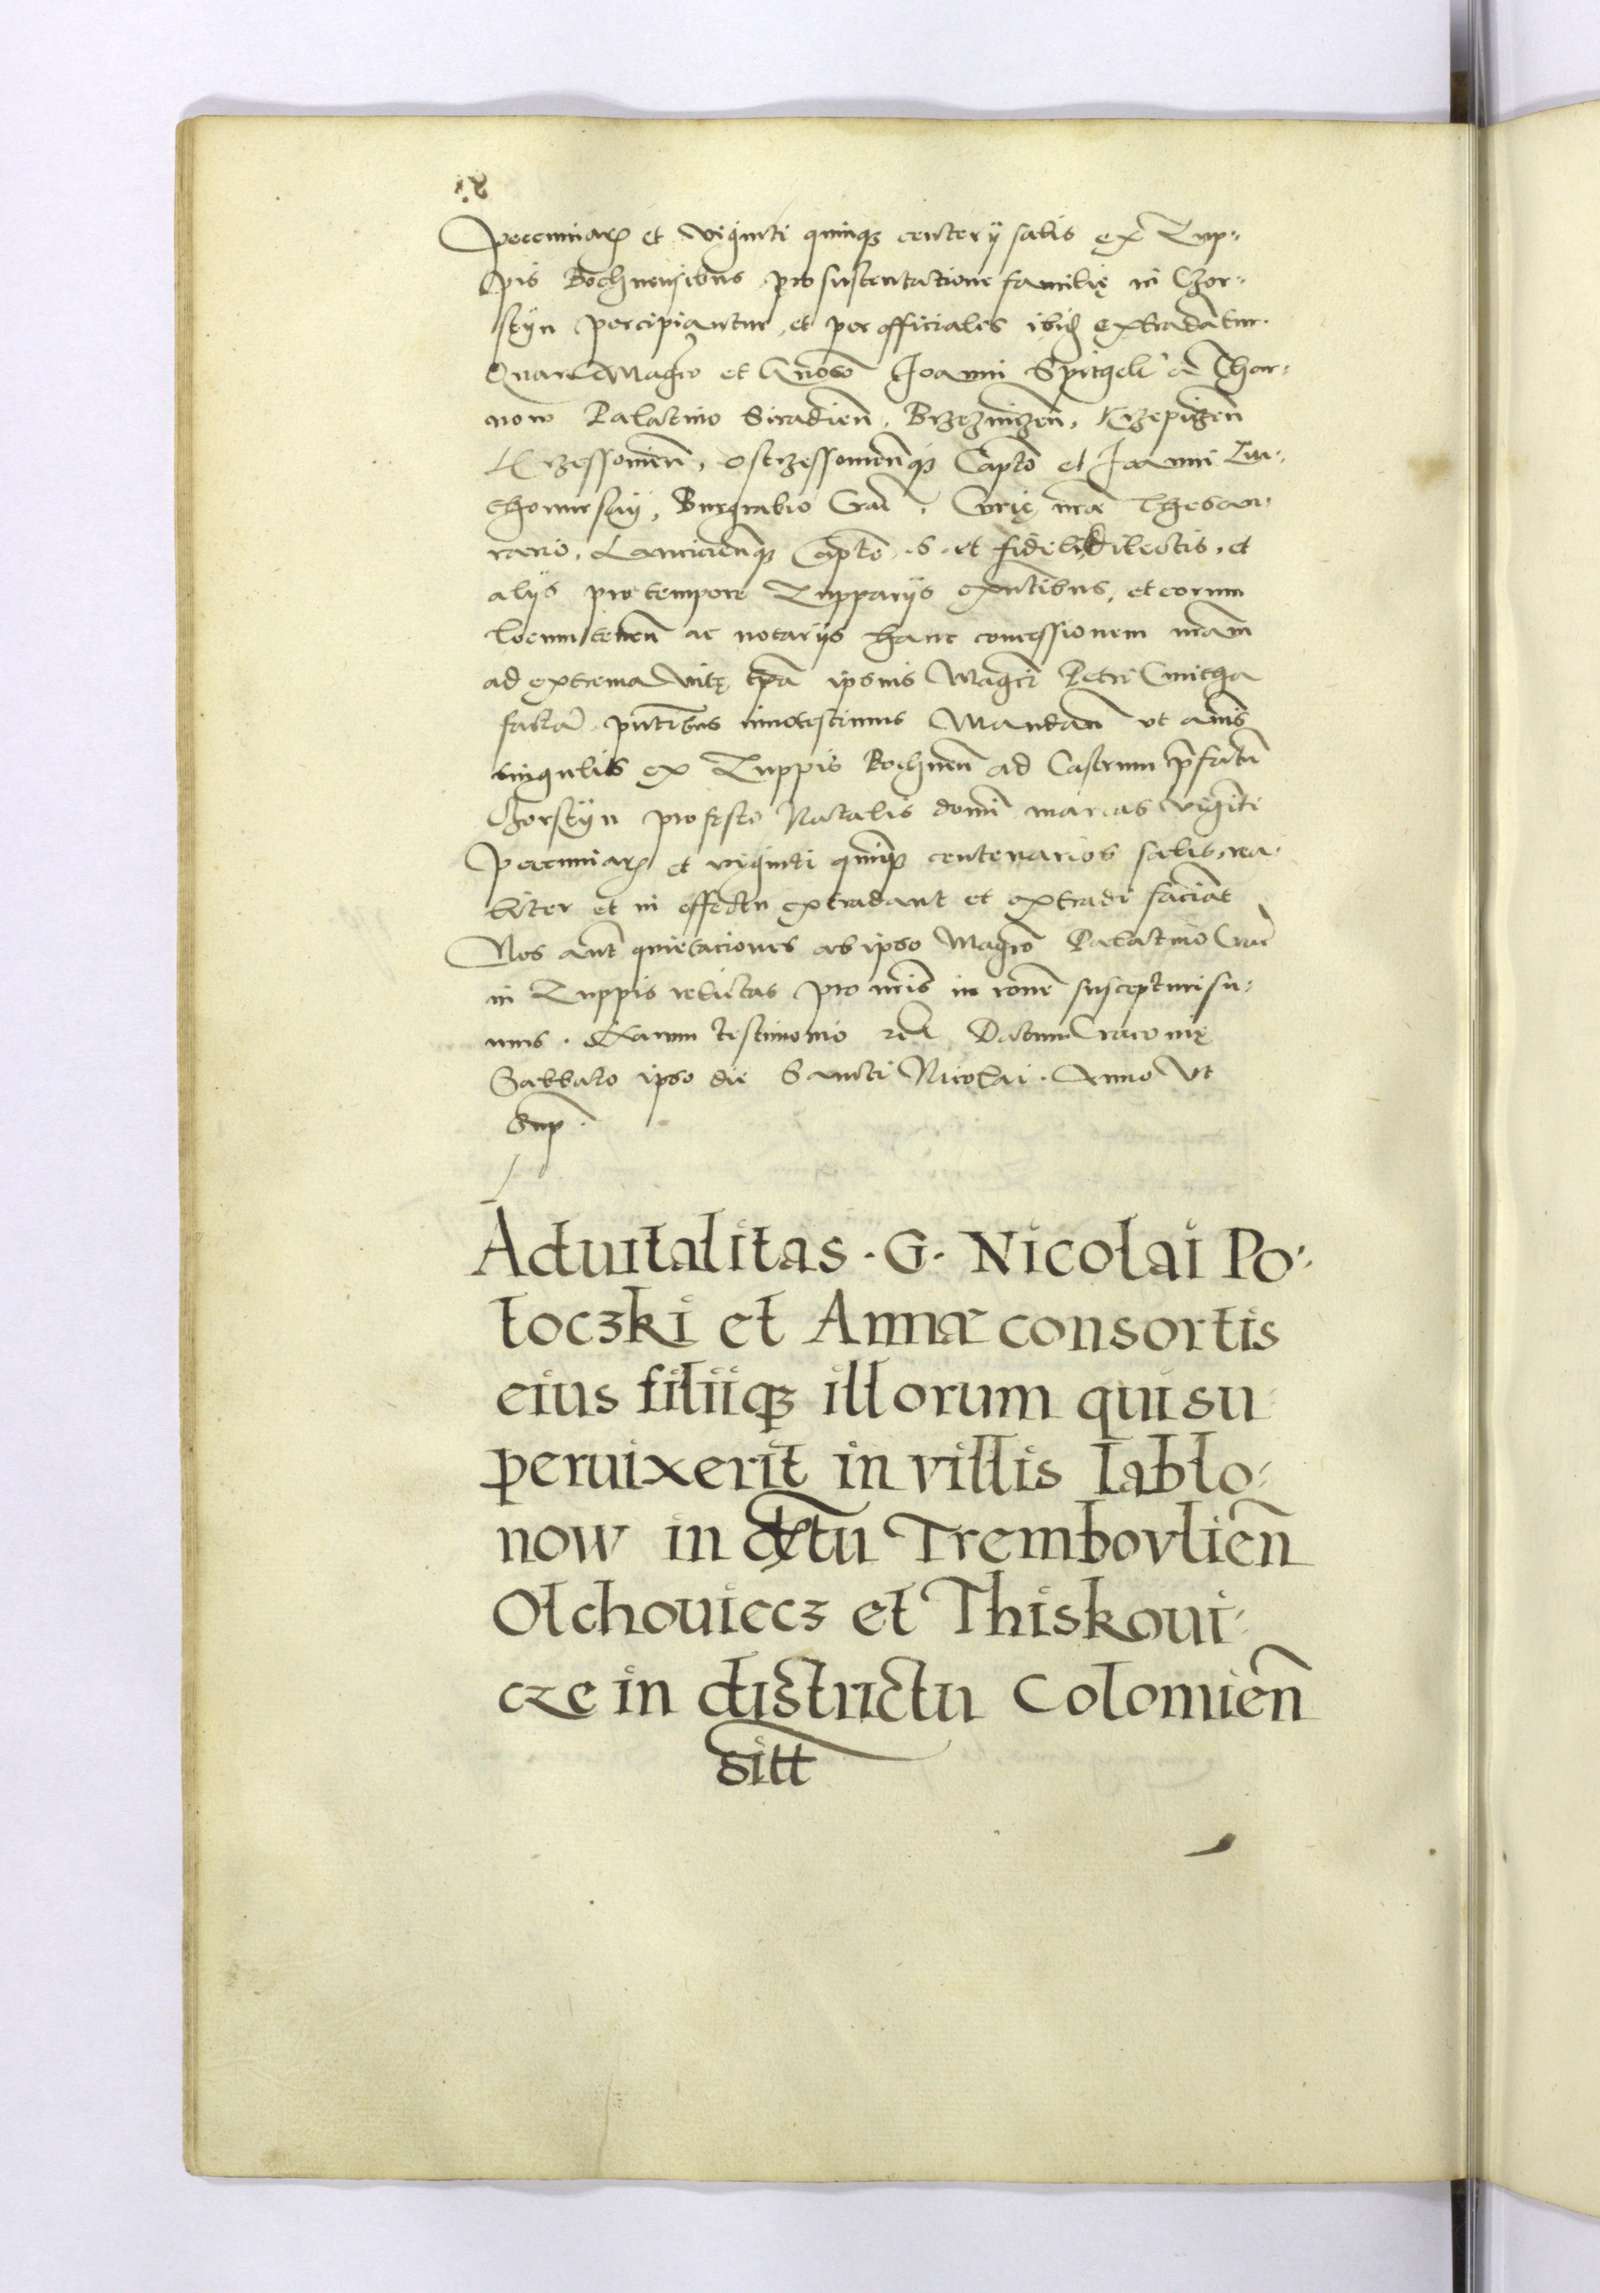 pecuniarꝝ et viginti quinqꝫ centeri salis ex Zup⸗
pis Bochnensibus pro sustentatione familię in Czor⸗
styn percipiantur, et per officiales ibid extradantur.
Quare Magco et Gnoso Joanni Spitgek a Thar⸗
now Palatino Siradien̄, Brzeznicen̄, Krzepicen̄
Krzessouien̄, Ostrzessouienqꝫ Capto et Joanni Lu⸗
thomirsky, Burgrabio Crac̄, Curię nrae Thesau⸗
rario, Lancicienqꝫ Capto, S. et fidel dilectis, et
alijs pro tempore Zupparijs exn̄tibus, et eorum
locumtenen̄ ac notarijs hanc concessionem nram̄
ad extrema vitę tp̄a ipsius Magci Petri Cmitha
factā, pn̄tibus innotescimus Mandan̄ ut annis
singulis ex Zuppis Bochnen̄ ad Castrum p̄fatū
Czorstyn pro festo Natalis domi marcas viginti
pecuniarꝝ et viginti quinqꝫ centenarios salis, rea⸗
liter et in effectu extradant et extradi faciāt
Nos aut̄ quietaciones ab ipso Magco Palatino Crac̄
in Zuppis relictas pro nris in ronē suscepturi su⸗
mus. Harum testimonio rā Datum Cracouię
Sabbato ipso die Sancti Nicolai. Anno Vt
Sup̄.
Aduitalitas · G · Nicolai Po⸗
toczki et Annæ consortis
eius filiiqꝫ illorum qui su⸗
peruixerit in villis Iablo⸗
now in dxtū Trembovlien̄
Olchouiecz et Thiskoui⸗
cze in districtu Colomien̄
sitt